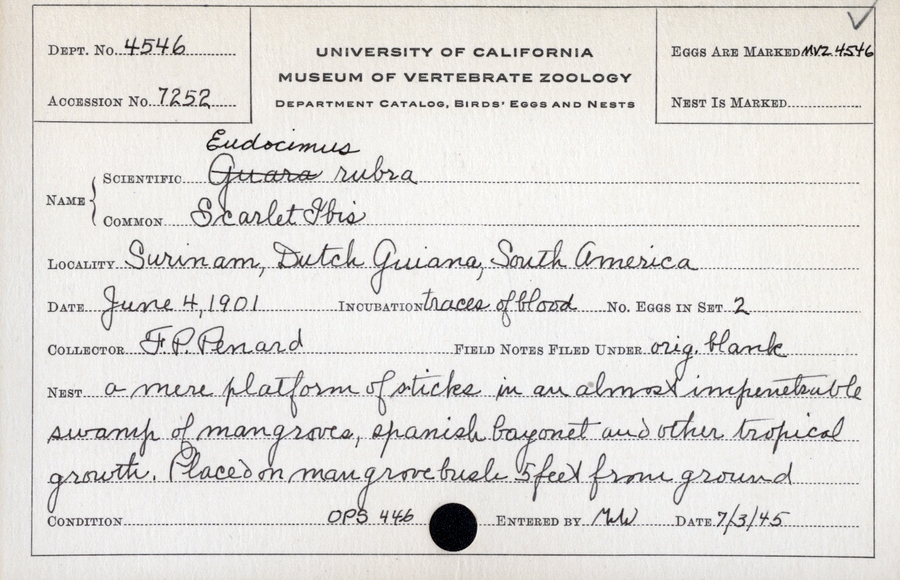 Dept. No. 4546
Accession No. 7252
UNIVERSITY OF CALIFORNIA
MUSEUM OF VERTEBRATE ZOOLOGY
Department Catalog, Birds' Eggs and Nests
Eggs Are Marked MVZ 4546
Nest Is Marked
Eudocimus
Name { Scientific Guara rubra
Common Scarlet Ibis
Locality Surinam, Dutch Guiana, South America
Date June 4, 1901 Incubation traces of blood No. Eggs in Set 2
Collector F. P. Penard Field Notes Filed Under orig. blank
Nest a mere platform of sticks in an almost impenetrable
swamp of mangroves, spanish bayonet and other tropical
growth. Placed on mangrove bush 5 feet from ground
Condition OPS 446 Entered by Date 7/3/45